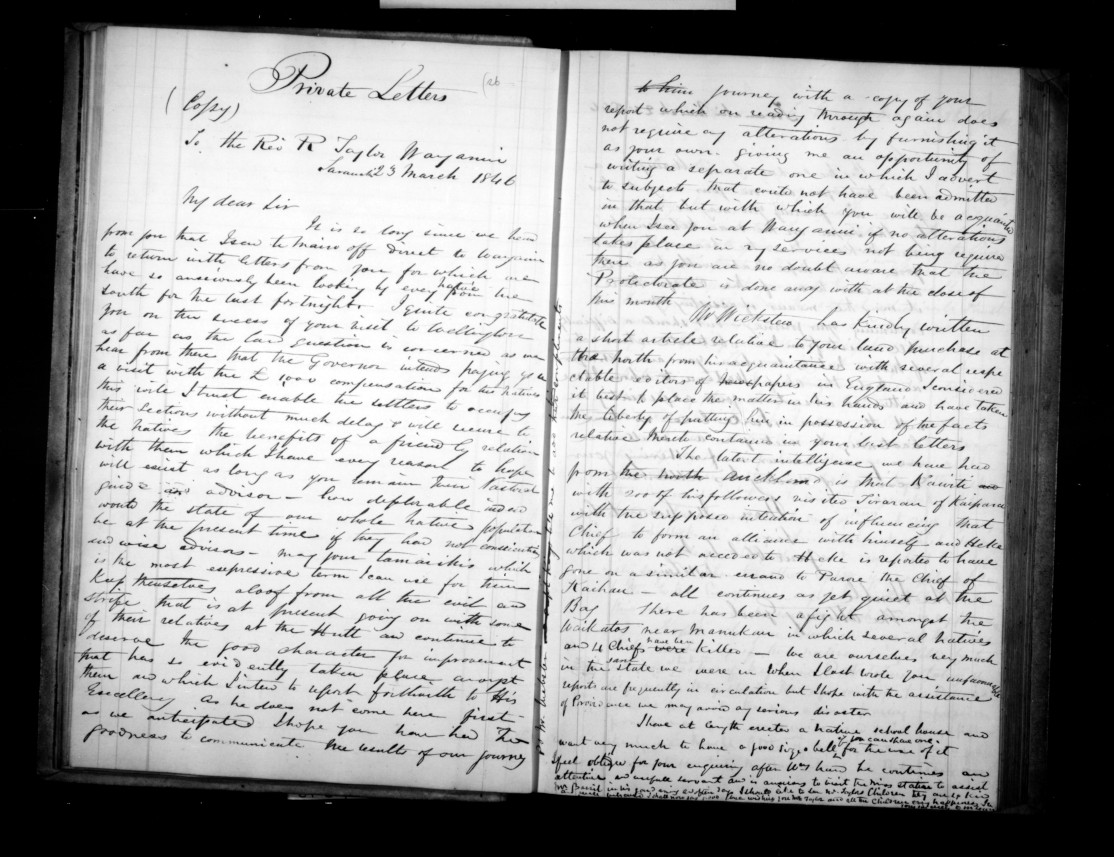 Private Letters
(Copy)
To the Rev R Taylor Wanganui
Taranaki 23 March 1846
My dear Sir
It is so long since we heard
from you that I send to Mairo off direct to Wanganui
to return with letters from you for which we
have so anxiously been looking by every native from the
South for the last fortnight. I quite congratulate
you on the success of your visit to Wellington
as far as the land question is concerned as we
hear from there that the Governor intends paying you
a visit with the £1000 compensation for the natives
this will I trust enable the settlers to occupy
their Sections without much delay & will secure to
the natives the benefits of a friendly relation
with them which I have every reason to hope
will exist as long as you remain their Pastoral
guide and advisor - how deplorable indeed
would the state of our whole native population
be at the present time if they had not conscientious
and wise advisors - may your tamariki's which
is the most expressive term I can use for them
Keep themselves aloof from all the evil and
strife that is at present going on with some
of their relatives at the Hutt and continue to
deserve the good character for improvement
that has so evidently taken place amongst
them and which I intend to report forthwith to His
Excellency as he does not come here first
as we anticipated I hope you have had the
goodness to communicate the results of our journey
to him journey with a copy of your
report which on reading through again does
not require any alterations by furnishing it
as your own. giving me an opportunity of
writing a separate one in which I advert
to subjects that could not have been admitted
in that but with which you will be acquainted
when I see you at Wanganui if no alterations
takes place in my services not being required
there as you are no doubt aware that the
Protectorate is done away with at the close of
this month
Mr Wicksteed has kindly written
a short article relative to your land purchase at
the north from his acquaintance with several respe
ctable editors of newspapers in England I considered
it best to place the matter in his hands and have taken
the liberty of putting him in possession of the facts
relative thereto contained in your last letters
The latest intelligence we have had
from the north Auckland is that Kawiti
with 200 of his followers visited Tirarau of Kaipara
with the supposed intention of influencing that
Chief to form an alliance with himself and Heke
which was not acceded to Heke is reported to have
gone on a similar errand to Parore the Chief of
Kaihau - all continues as yet quiet at the
Bay There has been a fight amongst the
Waikatos near Manukau in which several natives
and 4 Chiefs have been were Killed - We are ourselves very much
in the same state we were in when I last wrote you unfavourable
reports are frequently in circulation but I hope with the assistance
of Providence we may avoid any serious disaster
I have at length erected a native school house and
want very much to have a good sized bell if you can share one. for the use of it
I feel obliged for your enquiring after Wm he continues an
attentive and useful servant and is anxious to visit the Miss station to assist